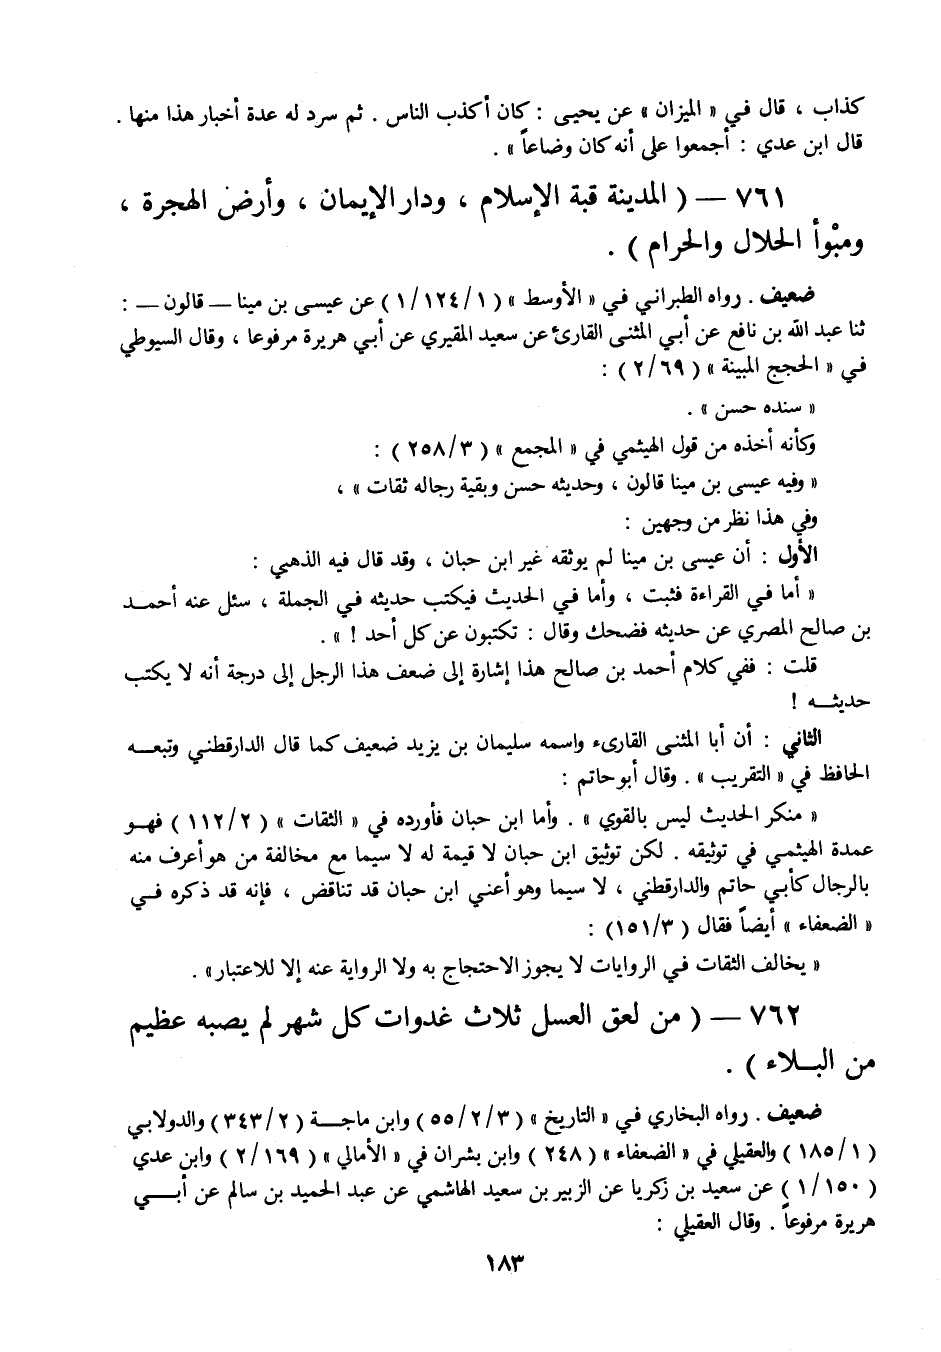 كذاب ، قال في « الميزان » عن يحيى : كان أكذب الناس . ثم سرد له عدة أخبار هذا منها .
قال ابن عدي : أجمعوا على أنه كان وضاعاً » .
٧٦١ — ( المدينة قبة الإسلام ، ودار الإيمان ، وأرض الهجرة ،
ومبْوأ الحلال والحرام ) .
ضعيف . رواه الطبراني في « الأوسط » ( ١/١٢٤/١ ) عن عيسى بن مينا — قالون — :
ثنا عبد الله بن نافع عن أبي المثنى القارئ عن سعيد المقبري عن أبي هريرة مرفوعا ، وقال السيوطي
في « الحجج المبينة » ( ٢/٦٩ ) :
« سنده حسن » .
وكأنه أخذه من قول الهيثمي في « المجمع » ( ٢٥٨/٣ ) :
« وفيه عيسى بن مينا قالون ، وحديثه حسن وبقية رجاله ثقات » ،
وفي هذا نظر من وجهين :
الأول : أن عيسى بن مينا لم يوثقه غير ابن حبان ، وقد قال فيه الذهبي :
« أما في القراءة فثبت ، وأما في الحديث فيكتب حديثه في الجملة ، سئل عنه أحمد
بن صالح المصري عن حديثه فضحك وقال : تكتبون عن كل أحد ! » .
قلت : ففي كلام أحمد بن صالح هذا إشارة إلى ضعف هذا الرجل إلى درجة أنه لا يكتب
حديثه !
الثاني : أن أبا المثنى القارىء واسمه سليمان بن يزيد ضعيف كما قال الدارقطني وتبعه
الحافظ في « التقريب » . وقال أبو حاتم :
« منكر الحديث ليس بالقوي » . وأما ابن حبان فأورده في « الثقات » ( ١١٢/٢ ) فهو
عمدة الهيثمي في توثيقه . لكن توثيق ابن حبان لا قيمة له لا سيما مع مخالفة من هو أعرف منه
بالرجال كأبي حاتم والدارقطني ، لا سيما وهو أعني ابن حبان قد تناقض ، فإنه قد ذكره في
« الضعفاء » أيضاً فقال ( ١٥١/٣) :
« يخالف الثقات في الروايات لا يجوز الاحتجاج به ولا الرواية عنه إلا للاعتبار» .
٧٦٢ — ( من لعق العسل ثلاث غدوات كل شهر لم يصبه عظيم
من البلاء ) .
ضعيف . رواه البخاري في « التاريخ » (٥٥/٢/٣) وابن ماجة (٣٤٣/٢) والدولابي
( ١٨٥/١ ) والعقيلي في « الضعفاء » (٢٤٨ ) وابن بشران في « الأمالي » ( ٢/١٦٩ ) وابن عدي
( ١/١٥٠ ) عن سعيد بن زكريا عن الزبير بن سعيد الهاشمي عن عبد الحميد بن سالم عن أبي
هريرة مرفوعاً . وقال العقيلي :
١٨٣